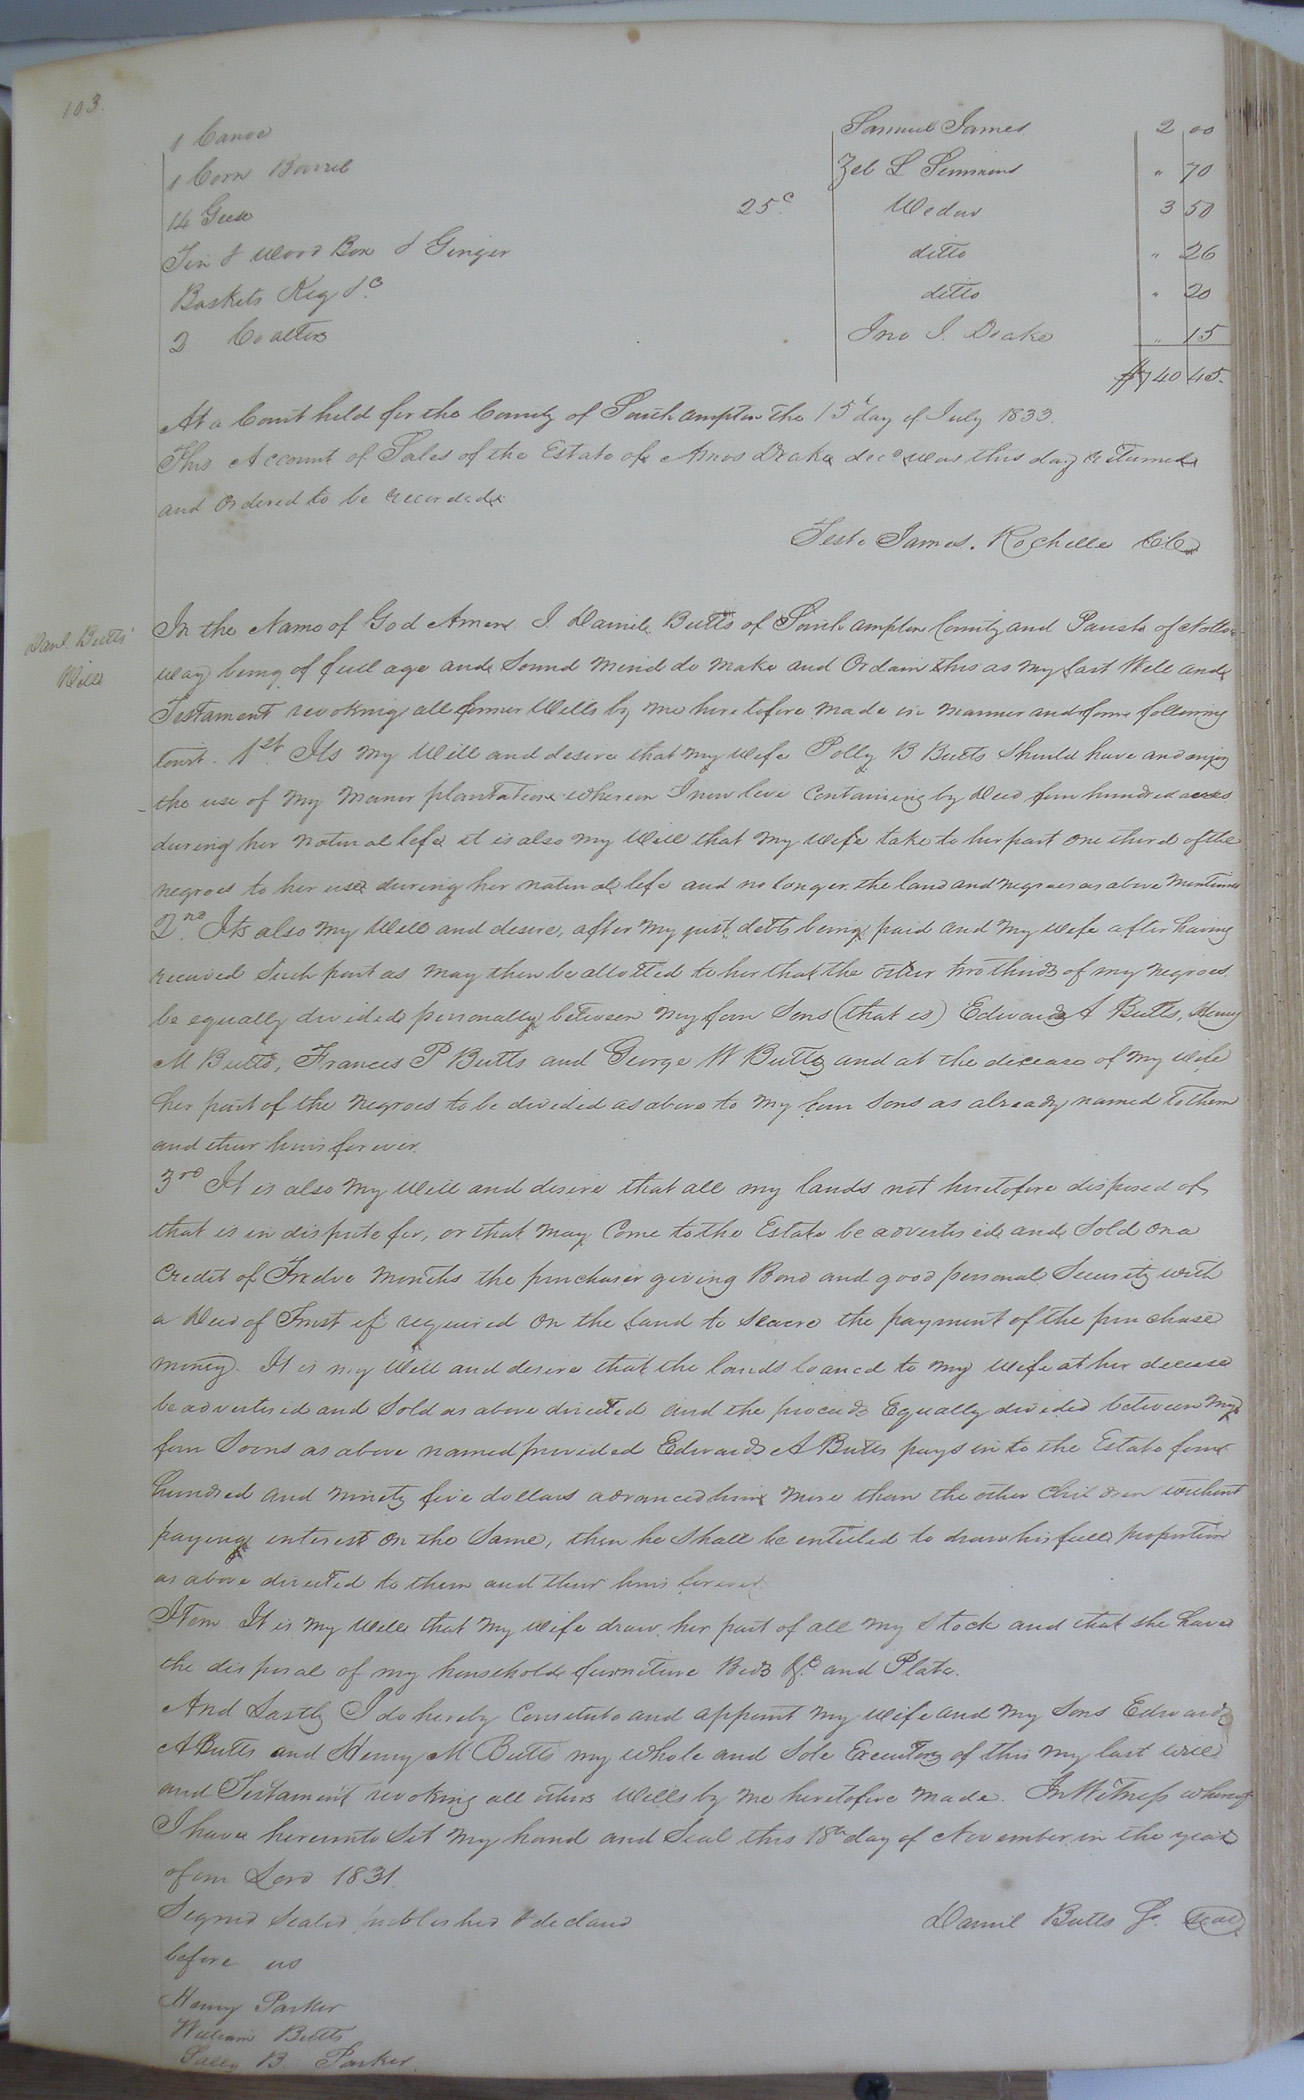 103.
1 Canoe Samuel James 2 00
1 Corn Barrel Zeb L Simmons " 70
14 Geese 25c Widow 3 50
Tin & Wood Box & Ginger ditto " 26
Baskets Keg &c ditto " 20
2 Coalters Jno J. Drake " 15
$740 45.
At a Court held for the County of Southampton the 15th day of July 1833.
This Account of Sales of the Estate of Amos Drake decd was this day returned
and ordered to be recorded.
Teste James. Rochelle CC
Danl. Butts'
Will
In the Name of God Amen. I Daniel Butts of Southampton County and Parish of Notto-
way being of full age and Sound mind do make and Ordain this as my last Will and
Testament revoking all former Wills by me heretofore made in manner and form following
towit. 1st. Its my Will and desire that my wife Polly B Butts Should have and enjoy
the use of my manor plantation whereon I now live Containing by Deed four hundred acres
during her natural life it is also my Will that my wife take to her part one third of the
negroes to her use during her natural life and no longer the land and negroes as above Mentioned
2nd. Its also my Will and desire, after my just debts being paid and my wife after having
received Such part as may then be allotted to her that the other two thirds of my negroes
be equally divided personally between my four Sons (that is) Edward A Butts, Henry
M Butts, Francis P Butts and George W Butts and at the decease of my wife
her part of the negroes to be divided as above to my four Sons as already named to them
and their heirs forever.
3rd It is also my Will and desire that all my lands not heretofore disposed of
that is in dispute for, or that may Come to the Estate be advertised and Sold on a
Credit of Twelve Months the purchaser giving Bond and good personal Security with
a Deed of Trust if required on the land to Secure the payment of the purchase
money. It is my Will and desire that the lands loaned to my wife at her decease
be advertised and Sold as above directed and the proceeds Equally divided between my
four Soons as above named provided Edward A Butts pays in to the Estate four
hundred and ninety five dollars advanced him more than the other Children without
paying interest on the Same, then he Shall be entitled to draw his full proportion
as above directed to them and their heirs forever
Item It is my Will that my wife draw her part of all my Stock and that she have
the disposal of my household furniture Beds &c. and Plate.
And Lastly I do hereby Constitute and appoint my wife and my Sons Edward
A Butts and Henry M Butts my whole and Sole Executors of this my last will
and Testament revoking all others Wills by me heretofore made. In Witness whereof
I have hereunto Set my hand and Seal this 18th day of November in the year
of our Lord 1831.
Signed Sealed published & declard Daniel Butts Sr. Seal
before us
Henry Parker
William Butts
Sally B. Parker